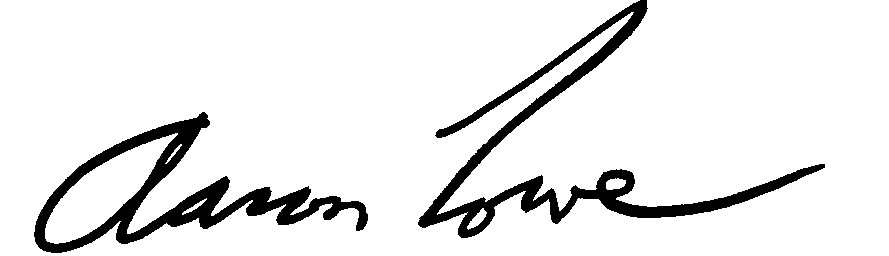 Aaron Lowe